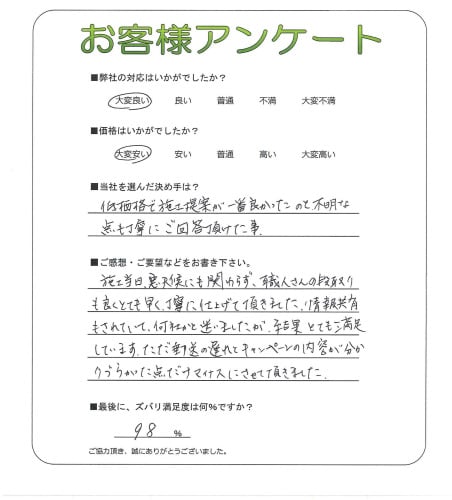 お客様アンケート
■弊社の対応はいかがでしたか？
大変良い 良い 普通 不満 大変不満
■価格はいかがでしたか？
大変安い 安い 普通 高い 大変高い
■当社を選んだ決め手は？
低価格で施工提案が一番良かったのと不明な
点も丁寧にご回答頂けた事.
■ご感想・ご要望などをお書き下さい。
施工当日、悪天候にも関わらず、職人さんの段取り
も良くとても早く、丁寧に仕上げて頂きました。情報共有
もされていて、何社かと迷いましたが、結果とても満足
しています。ただ郵送の遅れとキャンペーンの内容が分か
りづらかった点だけマイナスにさせて頂きました.
■最後に、ズバリ満足度は何％ですか？
98 ％
ご協力頂き、誠にありがとうございました。